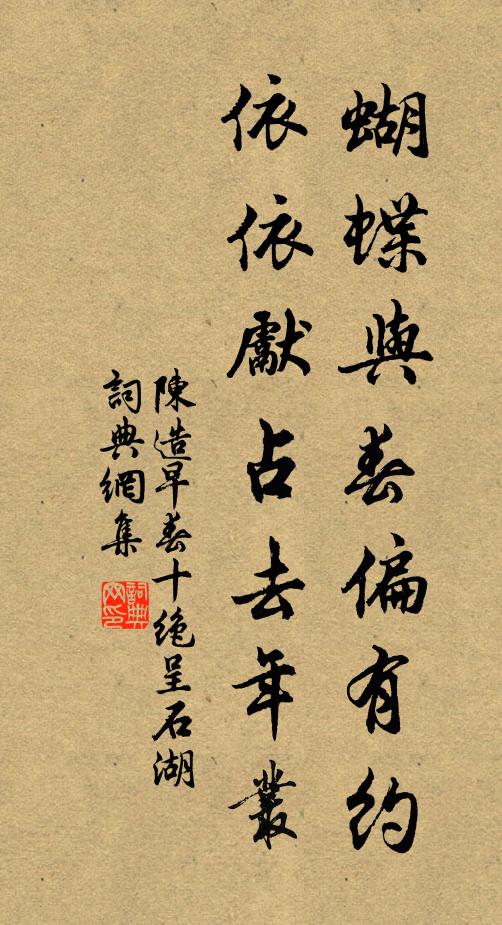 蝴蝶與春偏有約
依依獻占去年叢
陳造早春十絕呈石湖
詞典網集
詞典網印